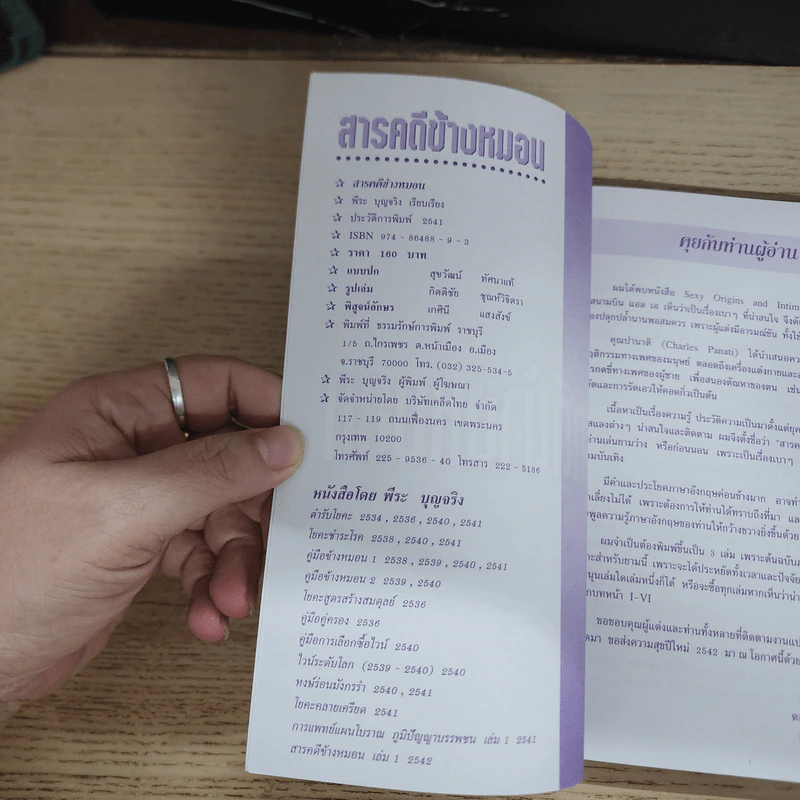 สารคดีข้างหมอน
☆ สารคดีข้างหมอน
☆ พีระ บุญจริง เรียบเรียง
☆ ประวัติการพิมพ์ 2541
☆ ISBN 974 - 86488 - 9 - 3
☆ ราคา 160 บาท
☆ แบบปก สุขวัฒน์ ทัศนาแท้
☆ รูปเล่ม กิตติชัย ชุณห์วิจิตรา
☆ พิสูจน์อักษร เกศินี แสงสังข์
☆ พิมพ์ที่ ธรรมรักษ์การพิมพ์ ราชบุรี
1/5 ถ.ไกรเพชร ต.หน้าเมือง อ.เมือง
จ.ราชบุรี 70000 โทร. (032) 325-534-5
☆ พีระ บุญจริง ผู้พิมพ์ ผู้โฆษณา
☆ จัดจำหน่ายโดย บริษัทเคล็ดไทย จำกัด
117 - 119 ถนนเฟื่องนคร เขตพระนคร
กรุงเทพ 10200
โทรศัพท์ 225 - 9536 - 40 โทรสาร 222 - 5186
หนังสือโดย พีระ บุญจริง
ตำรับโยคะ 2534 , 2536 , 2540 , 2541
โยคะชำระโรค 2538 , 2540 , 2541
คู่มือข้างหมอน 1 2538 , 2539 , 2540 , 2541
คู่มือข้างหมอน 2 2539 , 2540
โยคะสูตรสร้างสมดุลย์ 2536
คู่มือคู่ครอง 2536
คู่มือการเลือกซื้อไวน์ 2540
ไวน์ระดับโลก (2539 - 2540) 2540
หงษ์ร่อนมังกรรำ 2540 , 2541
โยคะคลายเครียด 2541
การแพทย์แผนโบราณ ภูมิปัญญาบรรพชน เล่ม 1 2541
สารคดีข้างหมอน เล่ม 1 2542
คุยกับท่านผู้อ่าน
ผมได้พบหนังสือ Sexy Origins and Intim
สนามบิน แอล เอ เห็นว่าเป็นเรื่องเบาๆ ที่น่าสนใจ จึงตั
องปลุกปล้ำนานพอสมควร เพราะผู้แต่งมีอารมณ์ขัน ทั้งใช้
คุณปานาติ (Charles Panati) ได้นำเสนอคว
ฤติกรรมทางเพศของมนุษย์ ตลอดถึงเครื่องแต่งกายและอ
รกดขี่ทางเพศของผู้ชาย เพื่อสนองตัณหาของตน เช่น
ัดและการรัดเอวให้คอดกิ่วเป็นต้น
เนื้อหาเป็นเรื่องความรู้ ประวัติความเป็นมาตั้งแต่ยุค
สแลงต่างๆ น่าสนใจและติดตาม ผมจึงตั้งชื่อว่า "สารค
อ่านเล่นยามว่าง หรือก่อนนอน เพราะเป็นเรื่องเบาๆ
มบันเทิง
มีคำและประโยคภาษาอังกฤษค่อนข้างมาก อาจทำ
เลี่ยงไม่ได้ เพราะต้องการให้ท่านได้ทราบถึงที่มา แล
พูลความรู้ภาษาอังกฤษของท่านให้กว้างขวางยิ่งขึ้นด้วย
ผมจำเป็นต้องพิมพ์ขึ้นเป็น 3 เล่ม เพราะต้นฉบับม
าะสำหรับยามนี้ เพราะจะได้ประหยัดทั้งเวลาและปัจจัย
นุนเล่มใดเล่มหนึ่งก็ได้ หรือจะซื้อทุกเล่มหากเห็นว่านำ
กบทหน้า I-VI
ขอขอบคุณผู้แต่งและท่านทั้งหลายที่ติดตามงานแป
ดมา ขอส่งความสุขปีใหม่ 2542 มา ณ โอกาสนี้ด้วย